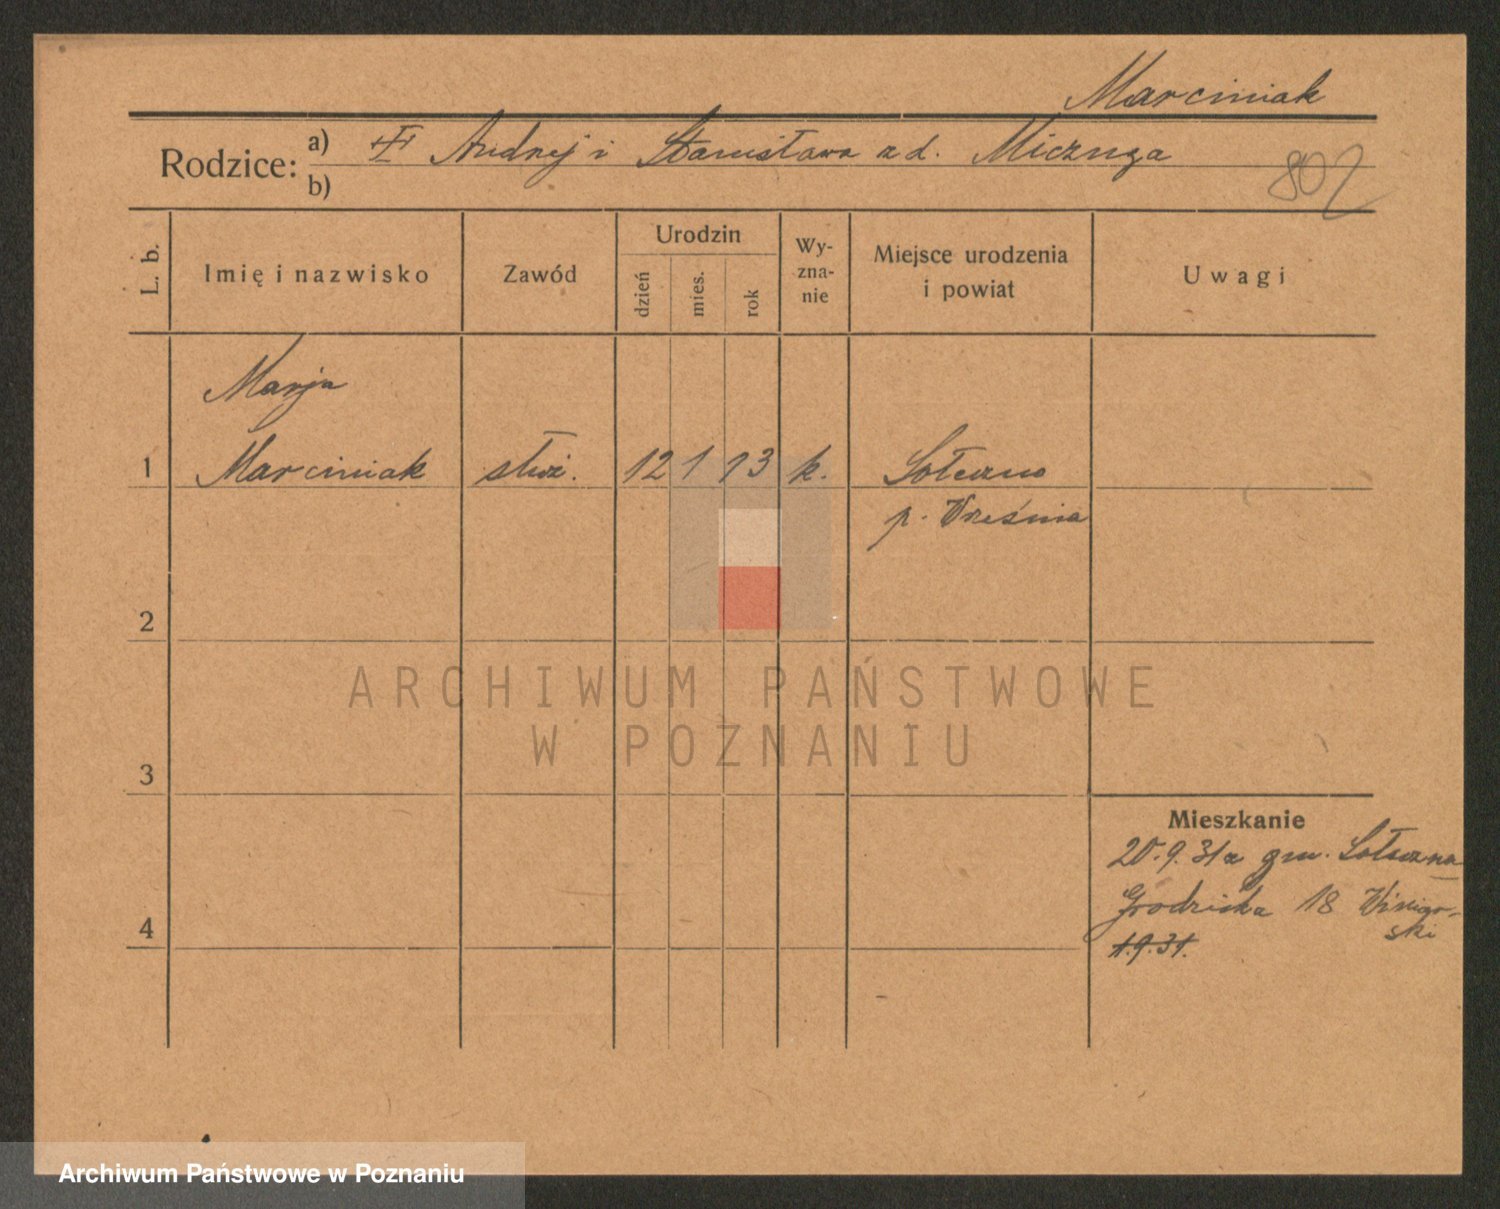 Marciniak
Rodzice: a) Andrzej i Stanisława z d. Miczuga
b)
802
L. b.
Imię i nazwisko
Zawód
Urodzin
dzień
mies.
rok
Wy-
zna-
nie
Miejsce urodzenia
i powiat
Uwagi
Marja
1 Marciniak służ. 12 1 13 k. Sołeczno
p. Września
2
ARCHIWUM PAŃSTWOWE
W POZNANIU
3
Mieszkanie
20.9.31 z gm.
Grodziska 18
4
1.9.31.
Archiwum Państwowe w Poznaniu